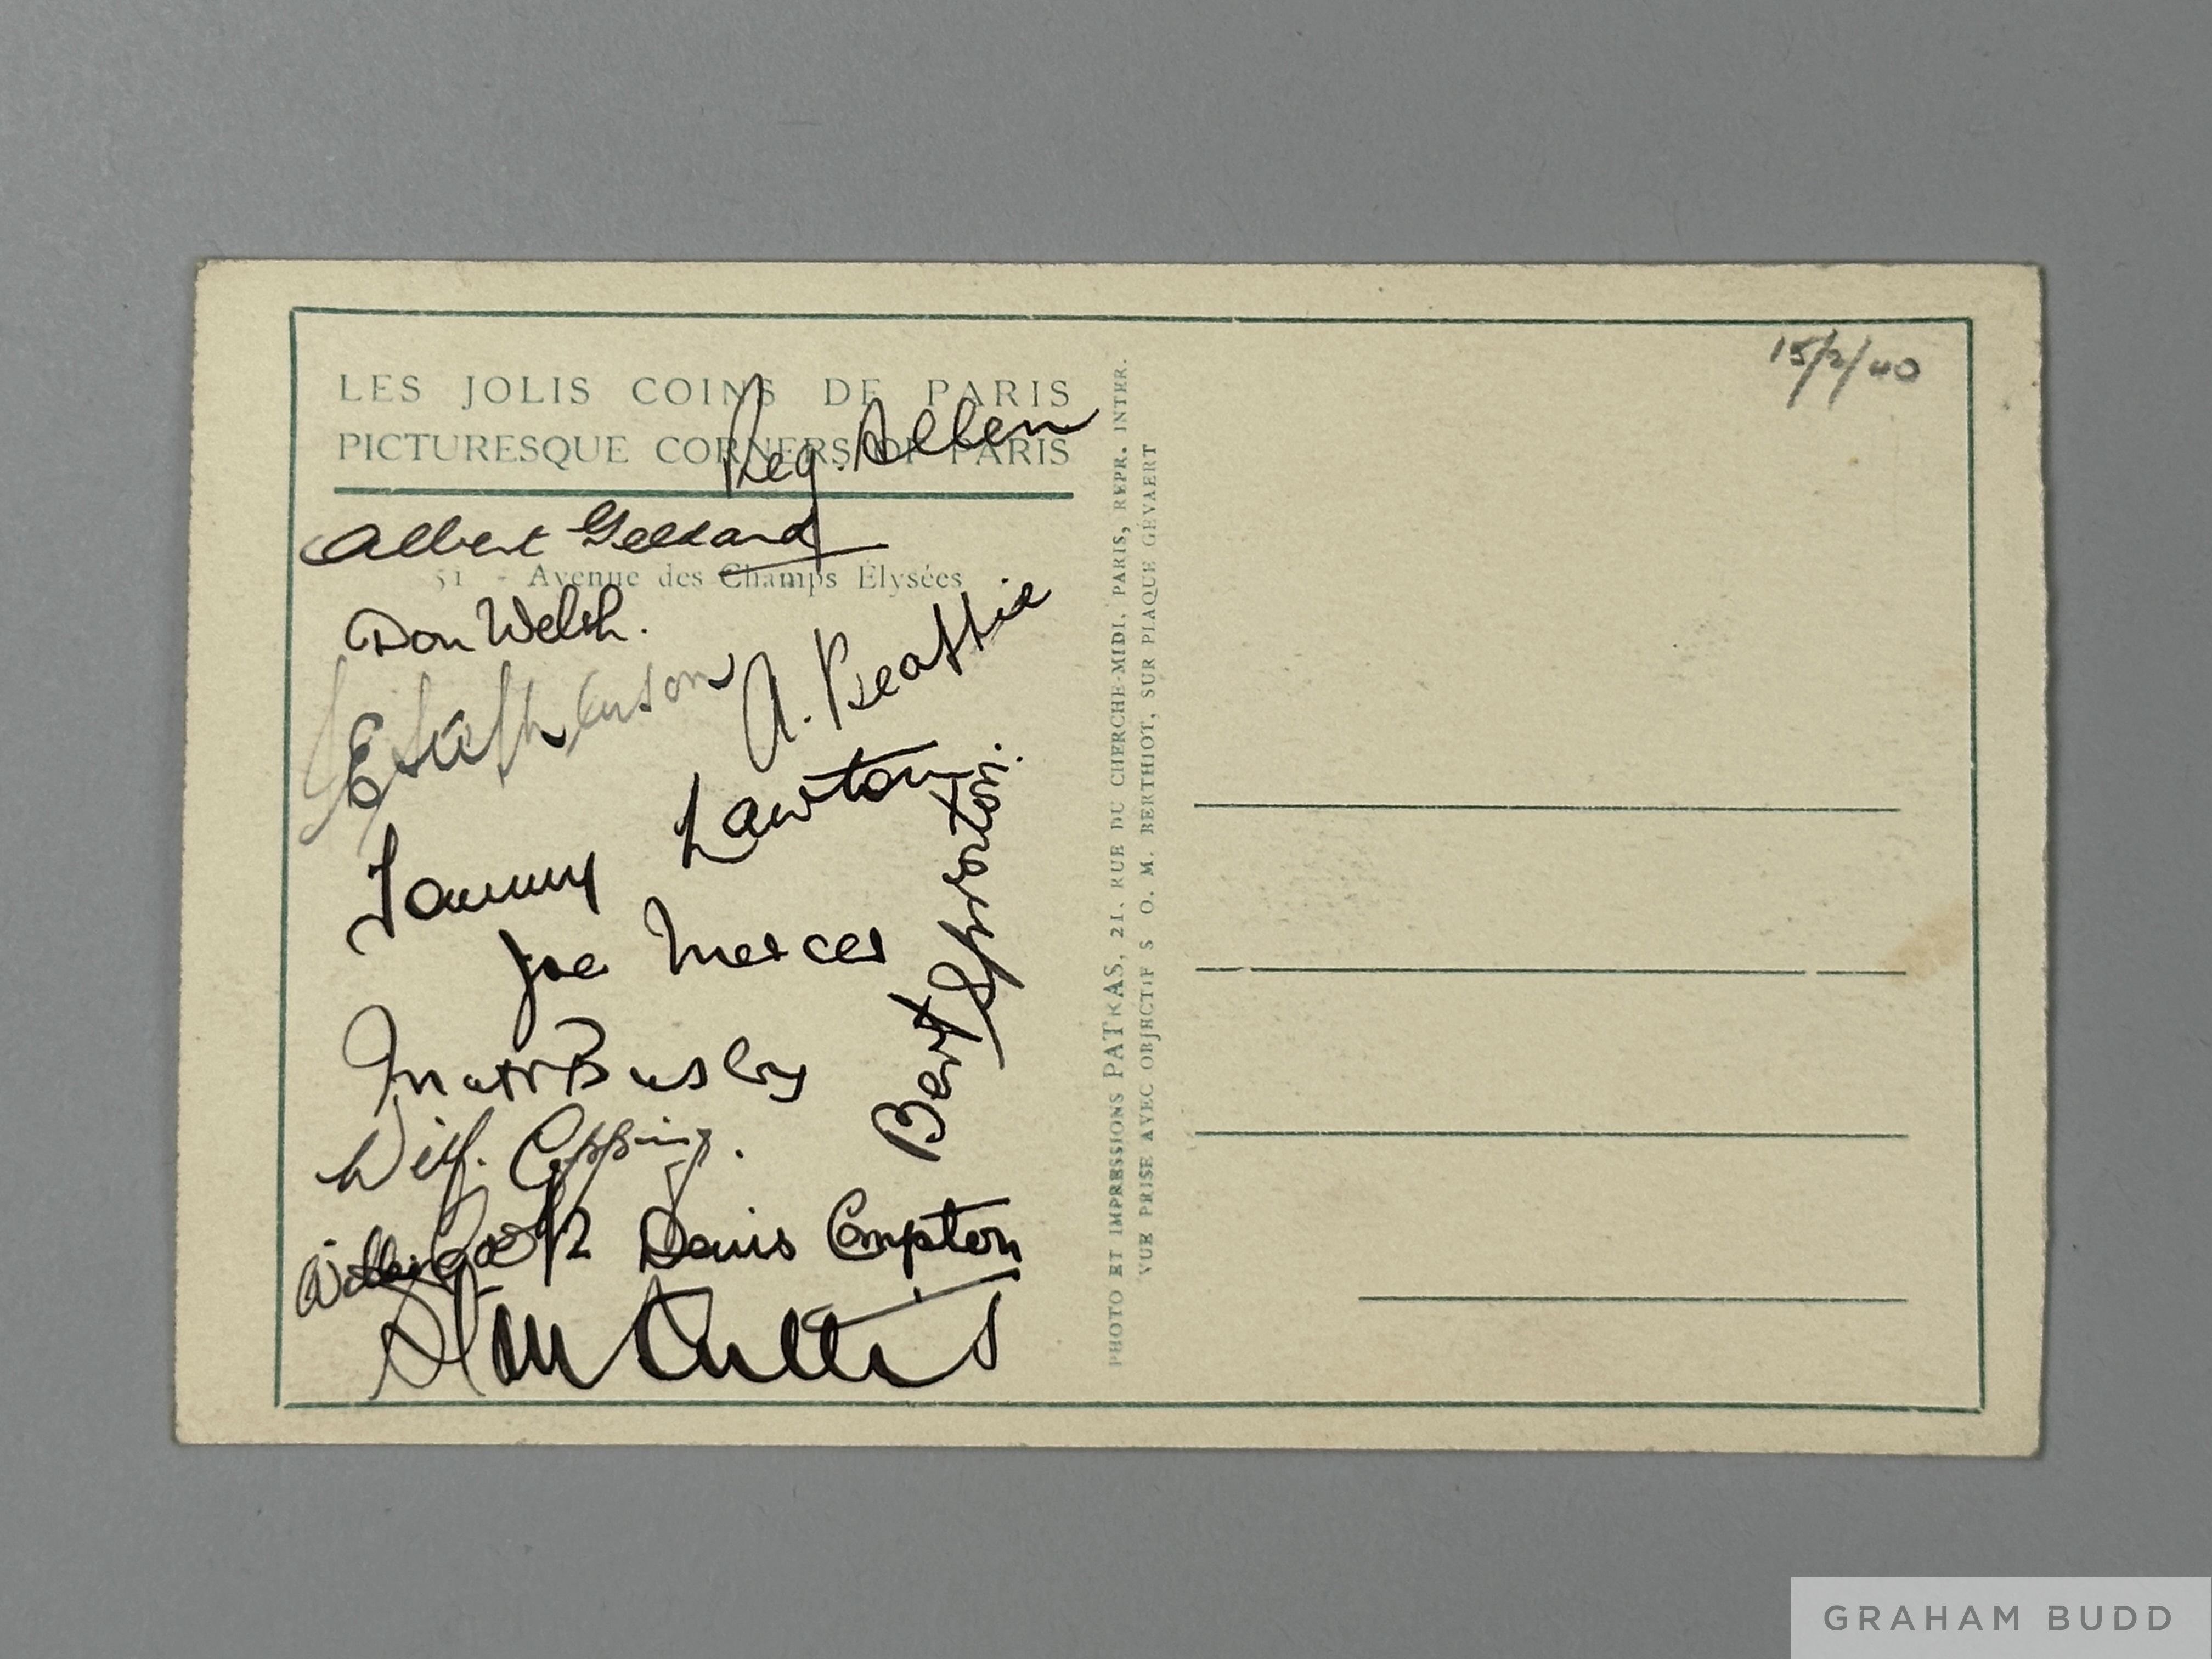 LES JOLIS COINS DE PARIS
PICTURESQUE CORNERS OF PARIS
Reg. Allen
Albert Geldard
51 - Avenue des Champs Élysées
Don Welsh.
A. Beattie
E Stephenson
Tommy Lawton
Joe Mercer
Bert Sproston.
Matt Busby
Wilf. Copping.
Willie Cook
Denis Compton
Stan Cullis
PHOTO ET IMPRESSIONS PATRAS, 21, RUE DU CHERCHE-MIDI, PARIS, REPR. INTER.
VUE PRISE AVEC OBJECTIF S O. M. BERTHIOT, SUR PLAQUE GEVAERT
15/2/40
GRAHAM BUDD